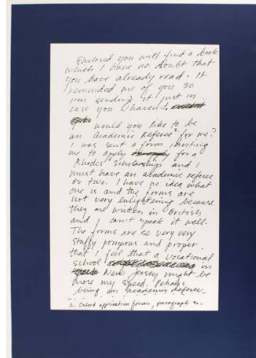 Enclosed you will find a book
which I have no doubt that
you have already read. It
reminded me of you so
I'm sending it just in
case you haven't.
would you like to be
an academic referee² for me?
I was sent a form inviting
me to apply for a
Rhodes scholarship and I
must have an academic referee
or two. I have no idea what
one is and the forms are
not very enlightening because
they are written in british
and I can't speak it well.
The forms are so very very
stuffy pompous and proper
that I feel that a vocational
school in
New Jersey might be
more my speed. Perhaps
being an academic referee
2. Oxford application forms, paragraph